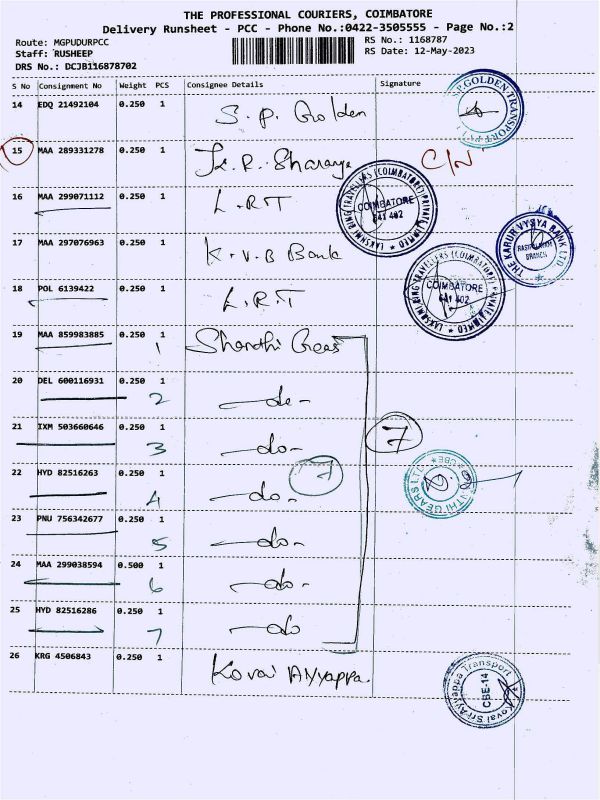 THE PROFESSIONAL COURIERS, COIMBATORE
Delivery Runsheet - PCC - Phone No.:0422-3505555 - Page No.:2
Route: MGPUDURPCC RS No.: 1168787
Staff: RUSHEEP RS Date: 12-May-2023
DRS No.: DCJB116878702
S No Consignment No Weight PCS Consignee Details Signature
14 EDQ 21492104 0.250 1 S. P. Golden
S.P.GOLDEN TRANSPORT
15 MAA 289331278 0.250 1 C/N
16 MAA 299071112 0.250 1 L.R.T
LAKSHMI RING TRAVELLERS (COIMBATORE) PRIVATE LIMITED
COIMBATORE
641 402
17 MAA 297076963 0.250 1 K.V.B Bank
THE KARUR VYSYA BANK LTD
BRANCH
18 POL 6139422 0.250 1 L.R.T
LAKSHMI RING TRAVELLERS (COIMBATORE) PRIVATE LIMITED
COIMBATORE
641 402
19 MAA 859983885 0.250 1 1 Shandhi Gears
20 DEL 600116931 0.250 1 2 -do-
21 IXM 503660646 0.250 1 3 -do-
7
22 HYD 82516263 0.250 1 4 -do-
7
THI GEARS LTD CBE
23 PNU 756342677 0.250 1 5 -do-
24 MAA 299038594 0.500 1 6 -do-
25 HYD 82516286 0.250 1 7 -do
26 KRG 4506843 0.250 1 Kovai Ayyappa
Kovai Sri Ayyappa Transport
CBE-14